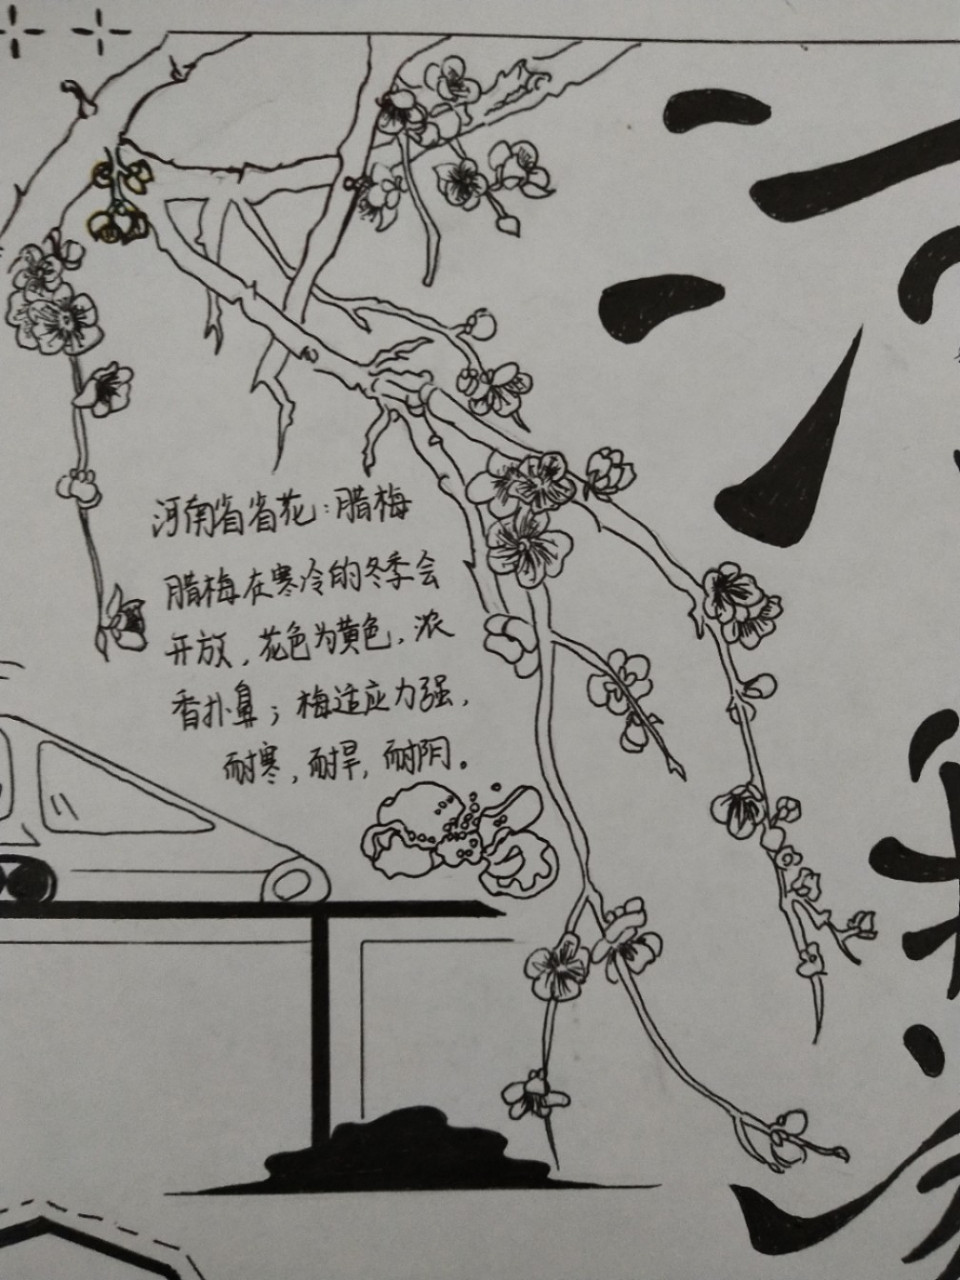 河南省省花：腊梅
腊梅在寒冷的冬季会
开放，花色为黄色，浓
香扑鼻；梅适应力强，
耐寒，耐旱，耐阴。